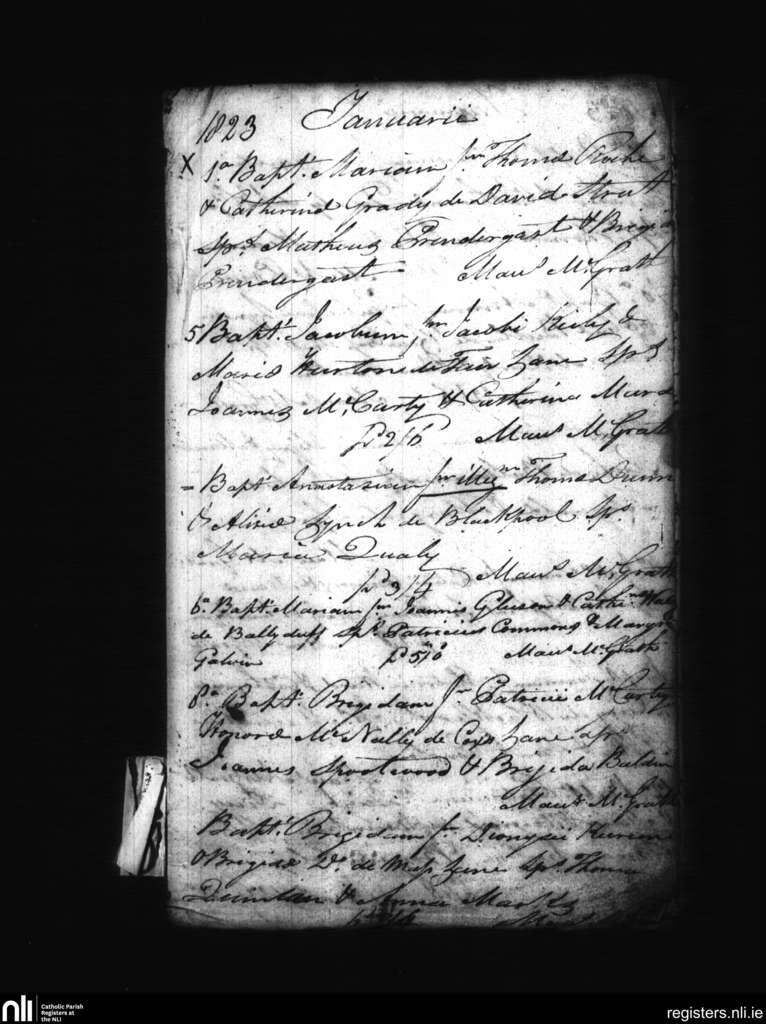 1823 Januarii
X 1a Bapt. Mariam fm Thomæ Roche
& Catherinæ Grady de David Street
Sps Matheus Prendergast & Brigid
Prendergast Maus McGrath
5 Bapt. Jacobum fm Jacobi Kiely &
Mariæ de Fair Lane Sps
Joannes McCarty & Catherina
pd 2/6 Maus McGrath
= Bapt. Anastasiam fm illegm Thomæ Dunn
& Aliciæ Lynch de Blackpool Sps
Maria Qualy
pd 3/4 Maus McGrath
6a Bapt. Mariam fm Joannis Gleeson & Cathn
de Ballyduff Sps Patricius Commons & Margt
Galvin pd 5/0 Maus McGrath
8a Bapt. Brigidam fm Patricii McCarty
Honoræ McNally de Coxs Lane Sps
Joannes Spotswood & Brigida Baldwin
Maus McGrath
Bapt. Brigidam fm Dionysii
& Brigidæ Do. de Mass Lane Sps Thomas
Quinlan & Anna
nli
Catholic Parish
Registers at
the NLI
registers.nli.ie